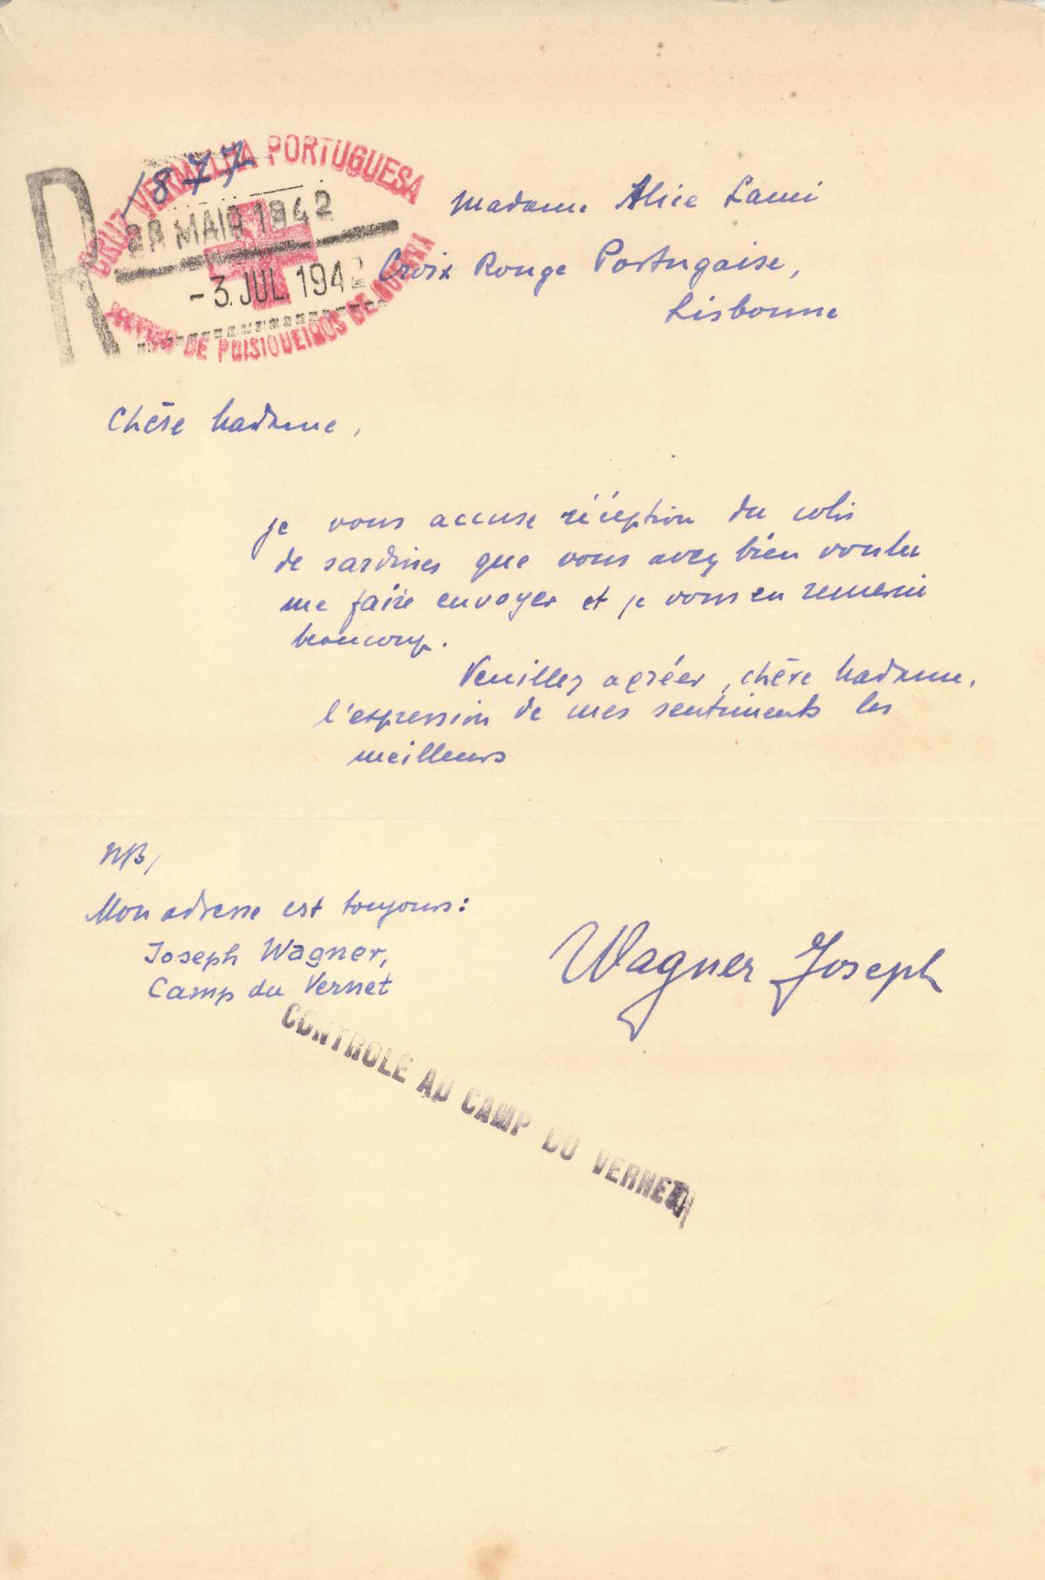 CRUZ VERMELHA PORTUGUESA
1877
R
28 MAIO 1942
-3. JUL. 1942
DE PRISIONEIROS DE GUERRA
Madame Alice Lami
Croix Rouge Portugaise,
Lisbonne
Chère Madame,
je vous accuse réception du colis
de sardines que vous avez bien voulu
me faire envoyer et je vous en remercie
beaucoup.
Veuillez agréer, chère Madame,
l'expression de mes sentiments les
meilleurs
NB/
Mon adresse est toujours:
Joseph Wagner,
Camp du Vernet
Wagner Joseph
CONTROLÉ AU CAMP DU VERNET